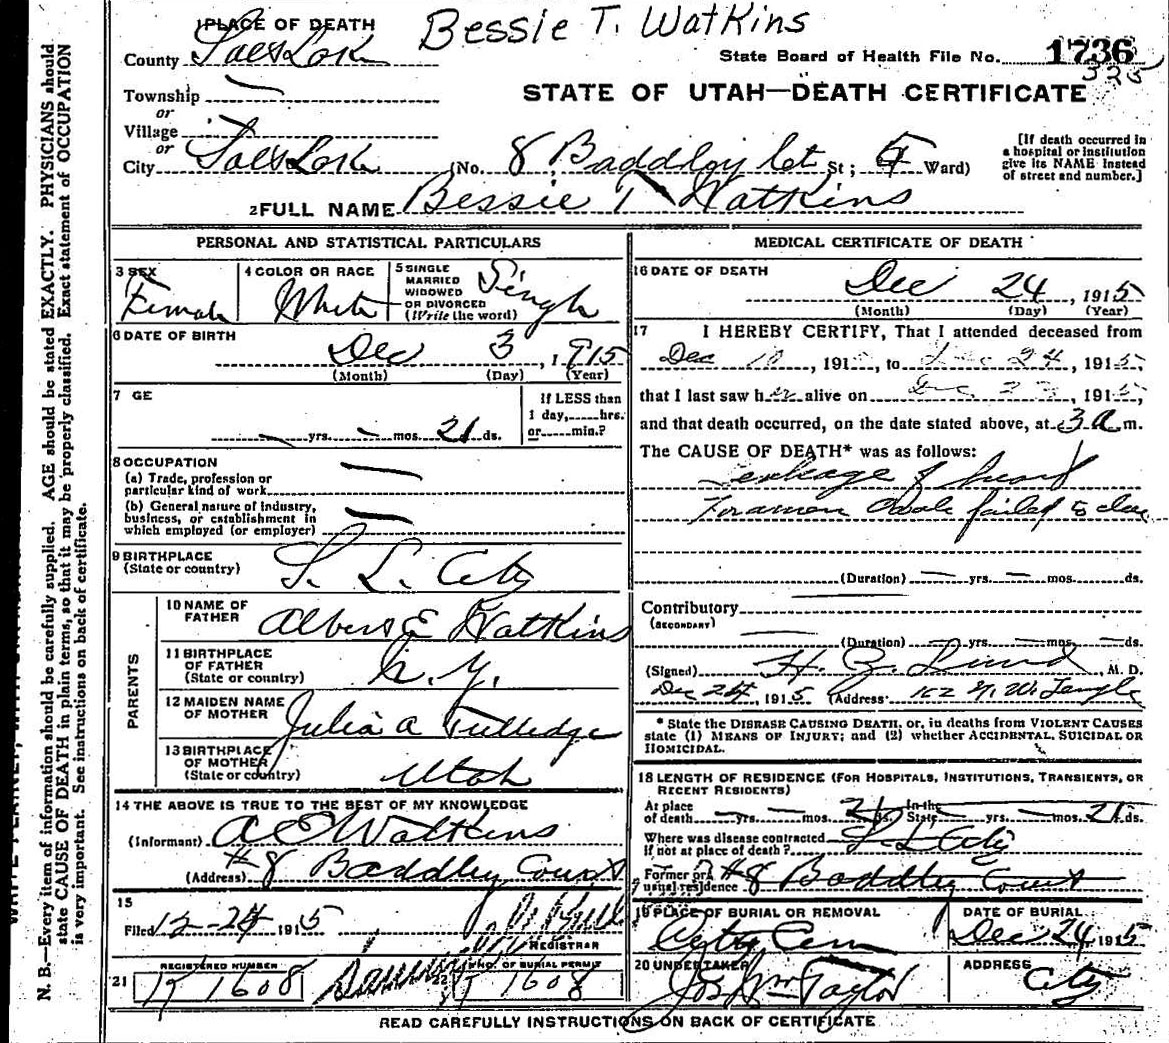 Bessie T. Watkins
1 PLACE OF DEATH
County Salt Lake
State Board of Health File No. 1736
325
Township —
or
Village
or
STATE OF UTAH—DEATH CERTIFICATE
City Salt Lake (No. 8 Baddley Cot St; 4 Ward)
[If death occurred in
a hospital or institution
give its NAME instead
of street and number.]
2 FULL NAME Bessie T Watkins
PERSONAL AND STATISTICAL PARTICULARS
3 SEX
Female
4 COLOR OR RACE
White
5 SINGLE
MARRIED
WIDOWED
OR DIVORCED
(Write the word)
Single
6 DATE OF BIRTH
Dec 3, 1915
(Month) (Day) (Year)
7 GE
— yrs. — mos. 21 ds.
If LESS than
1 day, hrs.
or min.?
8 OCCUPATION
(a) Trade, profession or
particular kind of work —
(b) General nature of industry,
business, or establishment in
which employed (or employer) —
9 BIRTHPLACE
(State or country) S. L. City
PARENTS
10 NAME OF
FATHER Albert E Watkins
11 BIRTHPLACE
OF FATHER
(State or country) N. Y.
12 MAIDEN NAME
OF MOTHER Julia A
13 BIRTHPLACE
OF MOTHER
(State or country) Utah
14 THE ABOVE IS TRUE TO THE BEST OF MY KNOWLEDGE
(Informant) A E Watkins
(Address) #8 Baddley Court
15
Filed 12-24 1915
REGISTRAR
21 REGISTERED NUMBER
1608
22 NO. OF BURIAL PERMIT
1608
MEDICAL CERTIFICATE OF DEATH
16 DATE OF DEATH
Dec 24, 1915
(Month) (Day) (Year)
17 I HEREBY CERTIFY, That I attended deceased from
Dec 10, 1915, to Dec 24, 1915,
that I last saw her alive on Dec 23, 1915,
and that death occurred, on the date stated above, at 3 a m.
The CAUSE OF DEATH* was as follows:
Leakage of heart
Foramen Ovale failed to close
(Duration) — yrs. — mos. ds.
Contributory
(SECONDARY)
(Duration) — yrs. — mos. — ds.
(Signed) H. Z. Lund, M. D.
Dec 24, 1915 (Address) Temple
* State the DISEASE CAUSING DEATH, or, in deaths from VIOLENT CAUSES
state (1) MEANS OF INJURY; and (2) whether ACCIDENTAL, SUICIDAL OR
HOMICIDAL.
18 LENGTH OF RESIDENCE (FOR HOSPITALS, INSTITUTIONS, TRANSIENTS, OR
RECENT RESIDENTS)
At place
of death — yrs. — mos. 21 ds. In the
State — yrs. — mos. 21 ds.
Where was disease contracted
If not at place of death? S L City
Former or
usual residence #8 Baddley Court
19 PLACE OF BURIAL OR REMOVAL
City Cem
DATE OF BURIAL
Dec 24 1915
20 UNDERTAKER
Jos Wm Taylor
ADDRESS
City
READ CAREFULLY INSTRUCTIONS ON BACK OF CERTIFICATE
N. B.—Every item of information should be carefully supplied. AGE should be stated EXACTLY. PHYSICIANS should
state CAUSE OF DEATH in plain terms, so that it may be properly classified. Exact statement of OCCUPATION
is very important. See instructions on back of certificate.